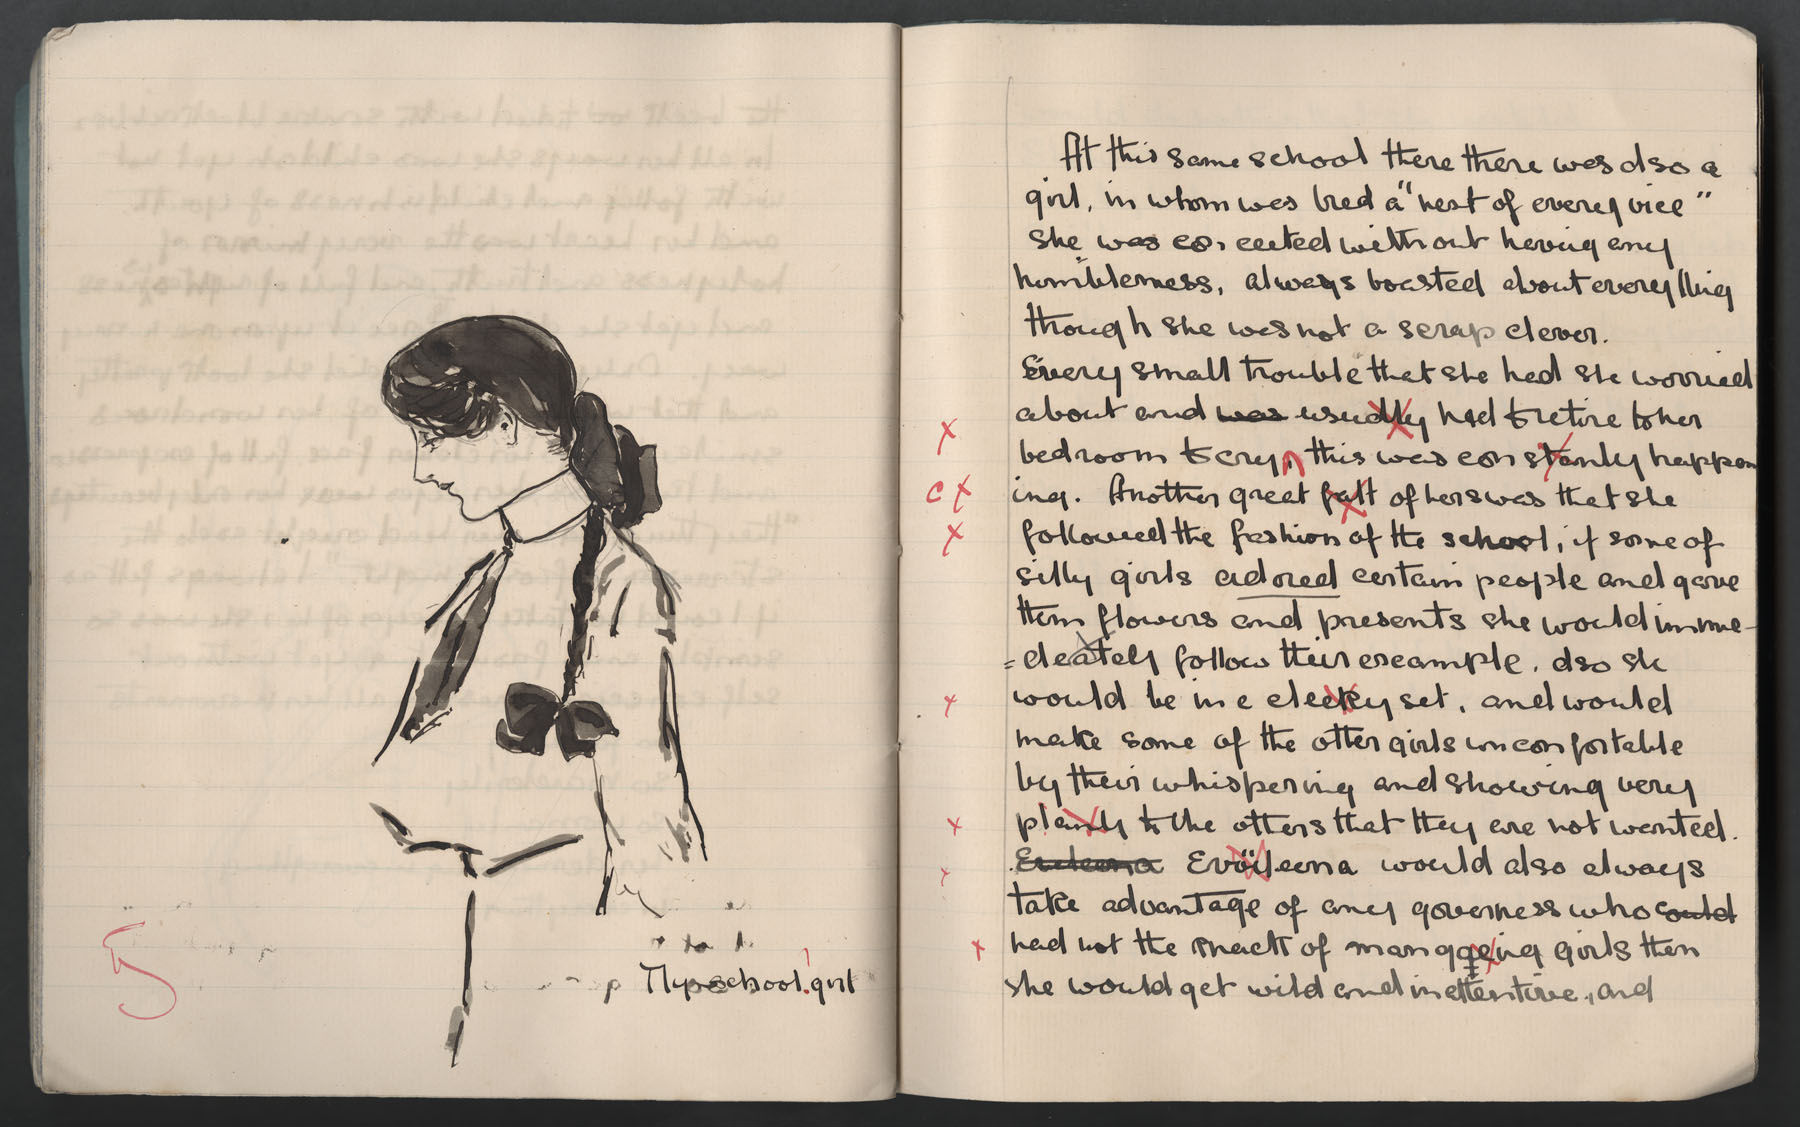 5
Typschool girl
At this same school there there was also a
girl, in whom was bred a "nest of every vice"
she was conceited without having any
humbleness, always boasted about everything
though she was not a scrap clever.
Every small trouble that she had she worried
about and was usually had to retire to her
bedroom to cry, this was constanly happen
ing. Another great falt of hers was that she
followed the fashion of the school, if some of
silly girls adored certain people and gave
them flowers and presents she would imme-
=deately follow their example. also she
would be in a cleeky set, and would
make some of the other girls unconfortable
by their whispering and showing very
planly to the others that they are not wanted.
Euleena Evöileena would also always
take advantage of any governess who could
had not the knack of mangqeing girls then
she would get wild and inattentive, and
x
c x
x
x
x
x
x